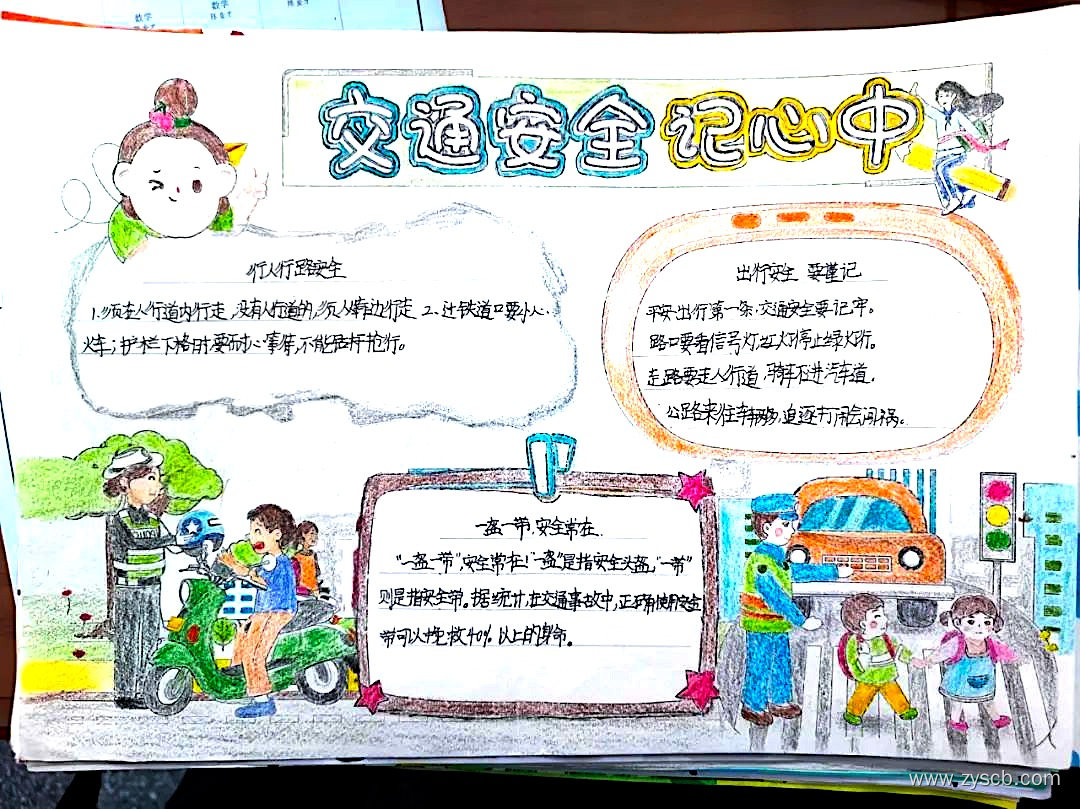 数学
数学
交通安全记心中
行人行路安全
1.须在人行道内行走,没有人行道的,须人靠边行走 2、过铁道口要小心
火车;护栏下格时要耐心等待,不能居杆抢行。
出行安全 要谨记
平安出行第一条,交通安全要记牢。
路口要看信号灯,红灯停止绿灯行。
走路要走人行道,骑车不进汽车道。
公路来往车辆多,追逐打闹会闯祸。
一盔一带,安全常在.
“一盔一带”,安全常在!“一盔”是指安全头盔,“一带”
则是指安全带。据统计,在交通事故中,正确使用安全
带可以挽救40%以上的身命。
www.zyscb.com